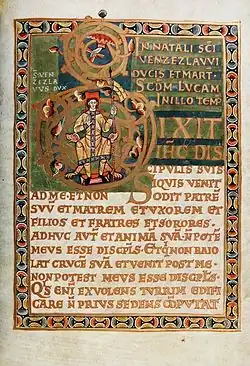 IN NATALI SCI
VENZEZLAVVI
DVCIS ET MART
SCDM LVCAM
IN ILLO TEMP
S VEN
ZEZLA
VVS DVX
DIXIT
IHC DIS
CIPVLIS SVIS
SIQVIS VENIT
AD ME ET NON ODIT PATRĒ
SVV̄ ET MATREM ET VXOREM ET
FILIOS ET FRATRES ET SORORES
ADHVC AVT̄ ET ANIMĀ SVĀ N̄ POTE
MEVS ESSE DISCPLS. ET Q N̄ BAIO
LAT CRVCĒ SVĀ ET VENIT POST ME
NON POTEST MEVS ESSE DISCPLS.
QS ENĪ EX VOLENS TVRRIM EDIFI
CARE N̄ PRIVS SEDENS CŌPVTAT